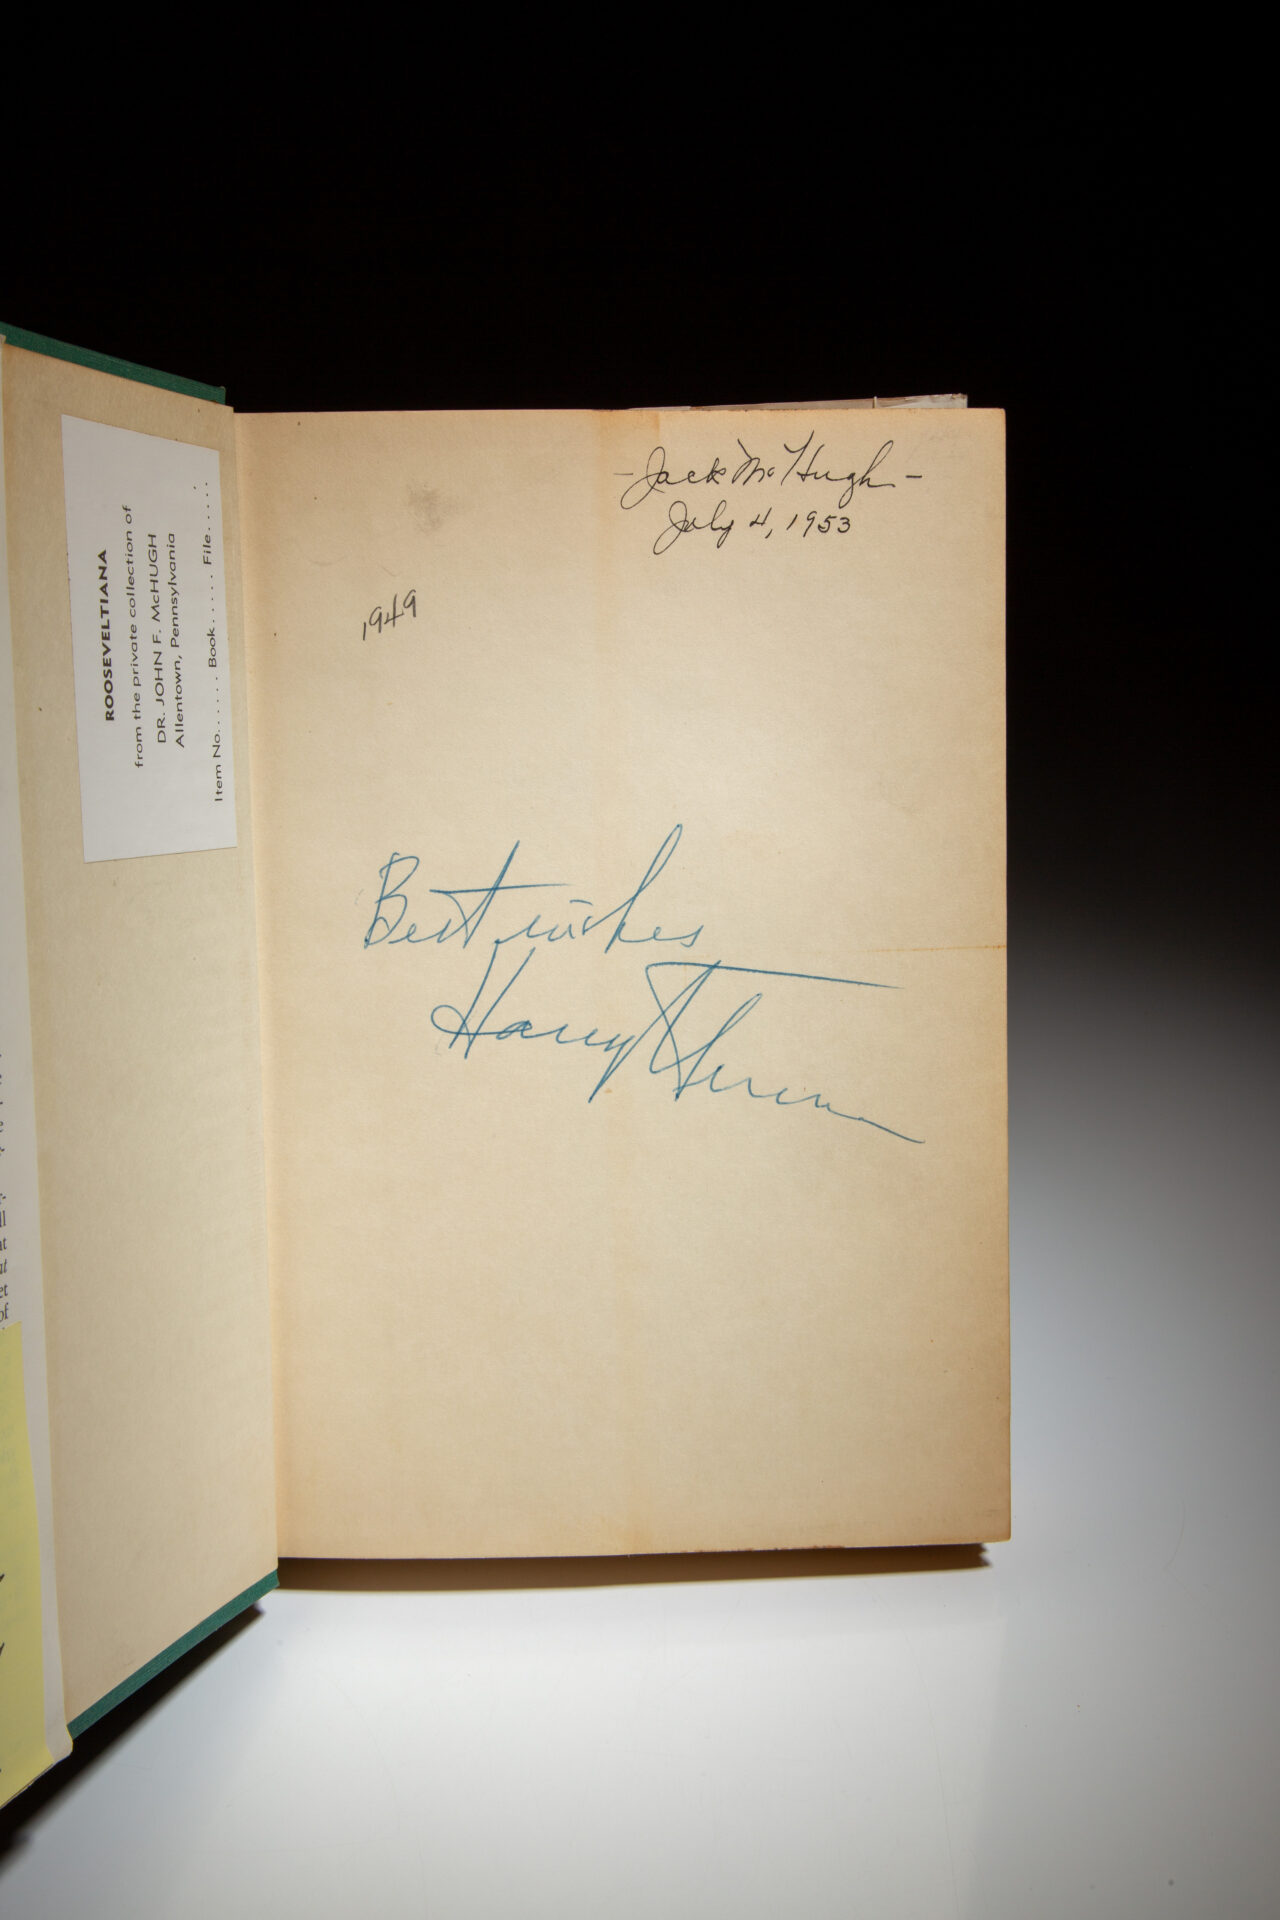 ROOSEVELTIANA
from the private collection of
DR. JOHN F. McHUGH
Allentown, Pennsylvania
Item No. . . . . . Book . . . . . File . . . . .
- Jack McHugh -
July 4, 1953
1949
Best wishes
Harry Truman
ll
at
et
of